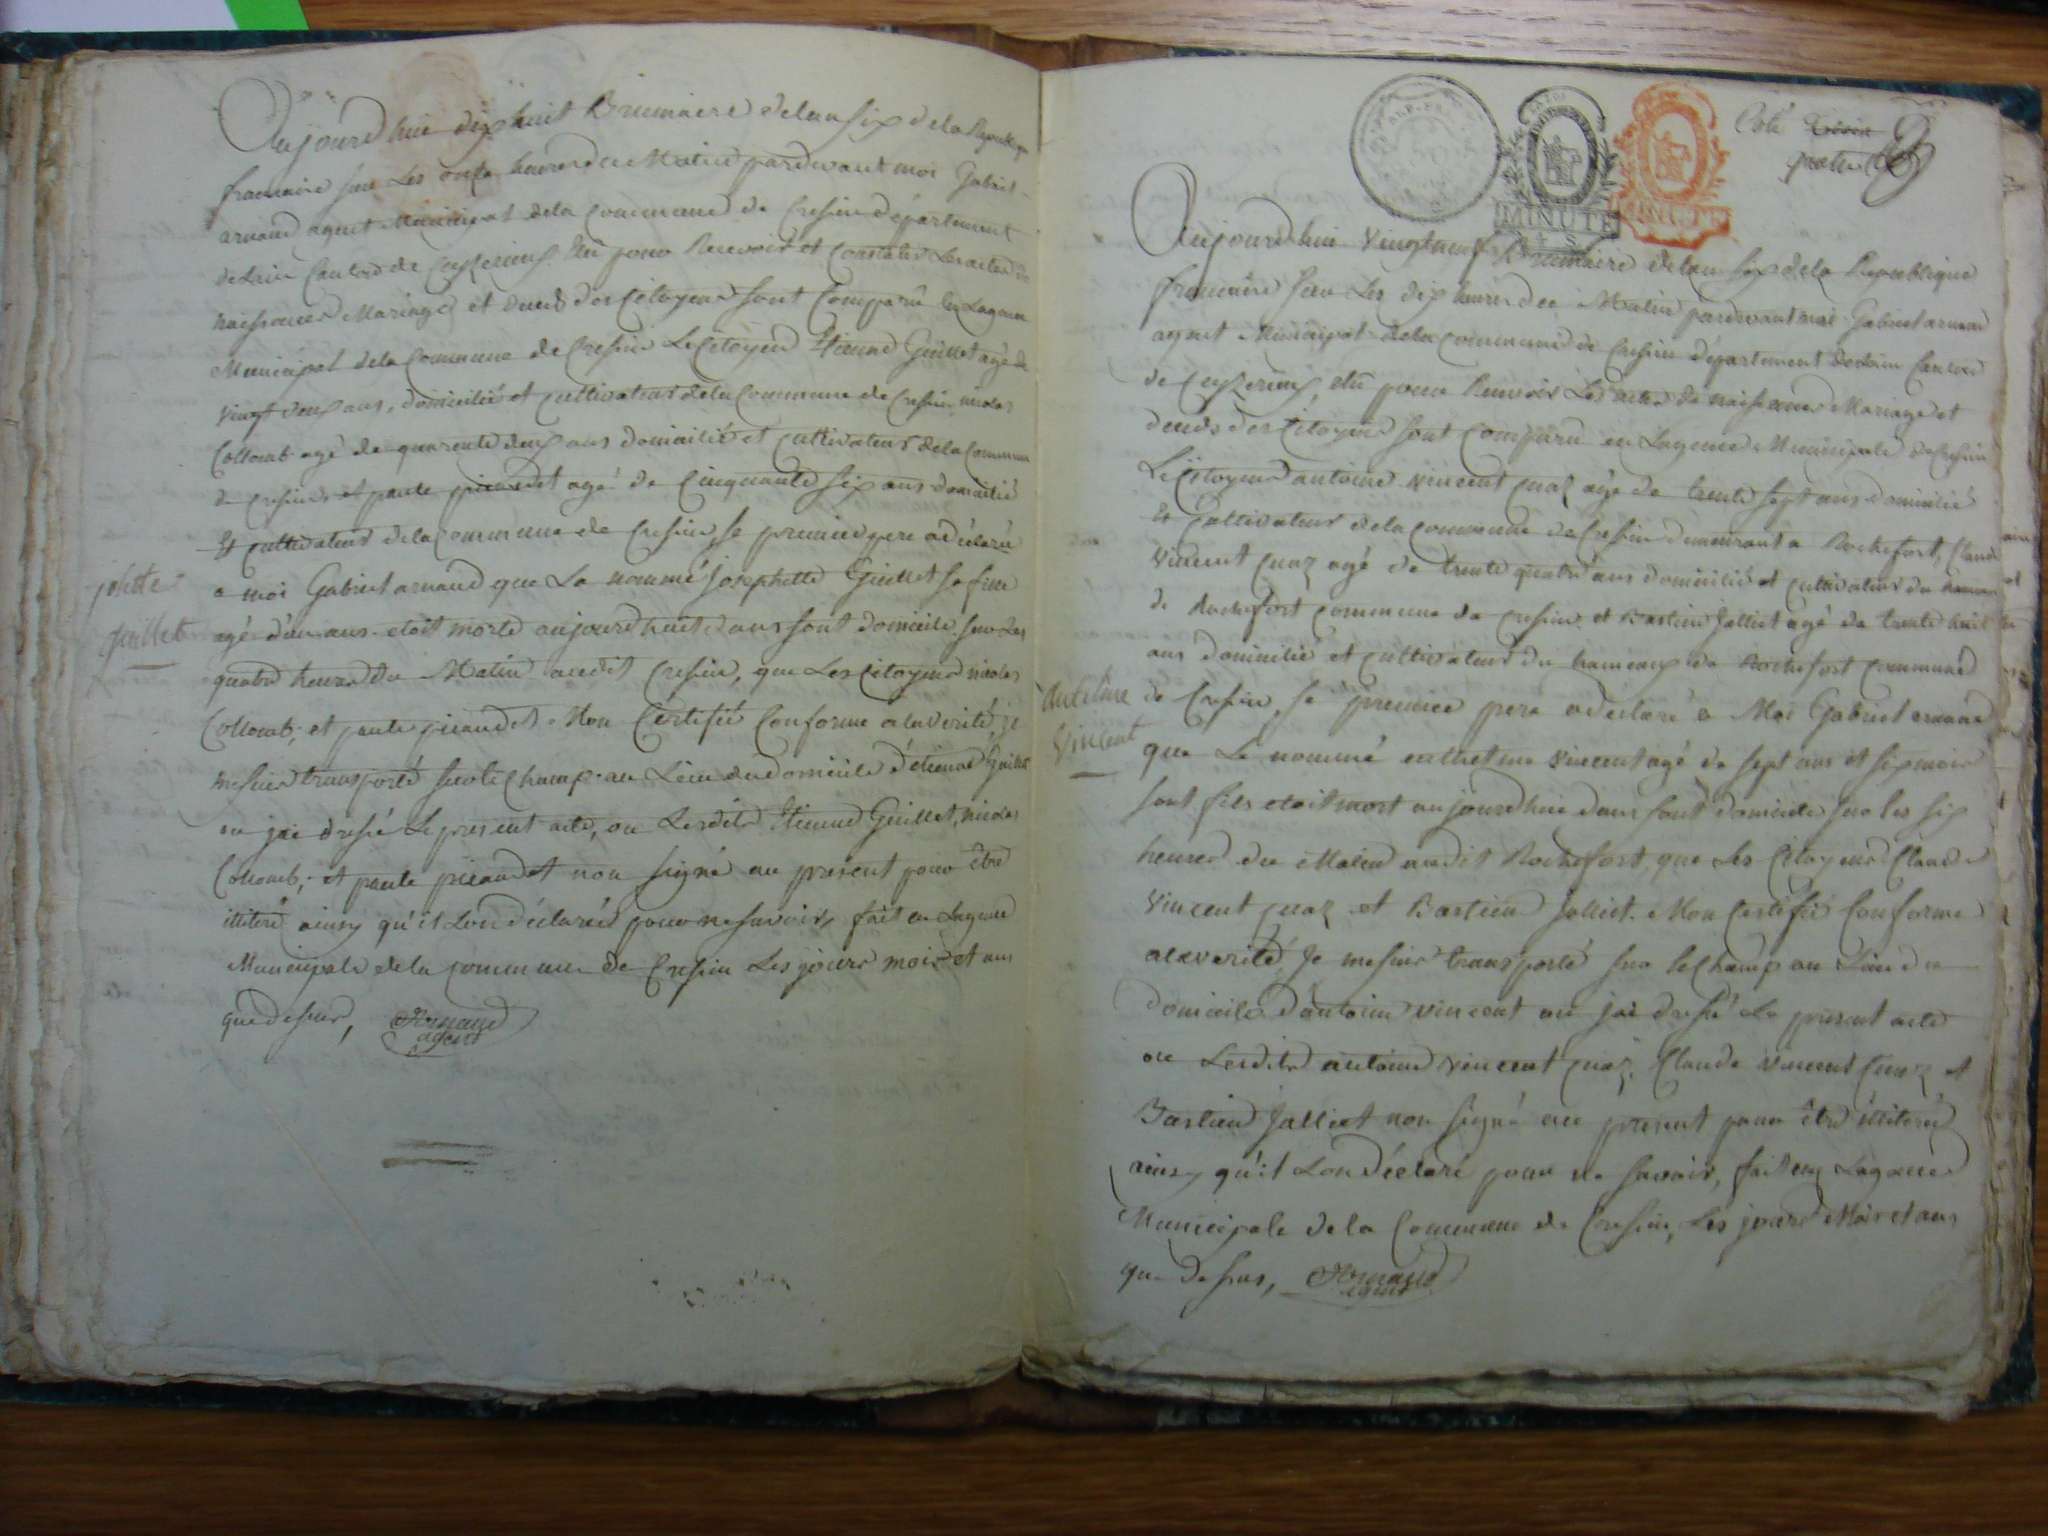 Aujourd huie dix huit Brumaire delan six dela Republique
francaise sur Les onze heures du Matin pardevant moi Gabriel
arnaud agent Municipal dela commune de Cressin département
de Lain Canton de Ceyzerieux Elu pour Recevoir et Constater Les actes de
naissances Mariage et deces des Citoyens sont Comparu en Lagence
Municipal dela Commune de Cressin Le Citoyen Etienne Guillet agé de
vingt deux ans, domicilié et cultivateur dela Commune de Cressin nicolas
Collomb agé de quarente deux ans domicilié et cultivateur dela Commune
de Cressin, et paule picaudet agé de Cinquante six ans domicilié
Et cultivateur dela commune de Cressin, le premier pere a déclaré
josette
guillet
a moi Gabriel arnaud que La nommé josephette Guillet sa fille
agé d'un ans etoit morte aujourd huit dans sont domicile sur Les
quatre heures du Matin audit Cressin, que Les Citoyens nicolas
Collomb, et paule picaudet Mon Certifié Conforme a la verité, je
me suis transporté sur le champ au Lieu du domicile d'étienne Guillet
ou jai dressé Le present acte, ou Lesdits Etienne Guillet, nicolas
Collomb, et paule picaudet non signé au present pour être
illiteré ainsy qu'il Lon déclaré pour ne savoir, fait en Lagence
Municipale dela commune de Cressin Les jours mois et ans
que dessus, Arnaud
agent
REP. FRA.
MINUTE
MINUTE
Coté
quatre
Aujourd huie vingt neuf Brumaire delan six dela Republique
francaise sur Les dix heures du Matin pardevant moi Gabriel arnaud
agent Municipal dela commune de Cressin département de Lain Canton
de Ceyzerieux, élu pour Recevoir Les actes de naissances Mariage et
deceds des Citoyens sont comparu en Lagence Municipale de Cressin
Le Citoyen antoine vincent cuaz agé de trente sept ans domicilié
Et cultivateur dela commune de Cressin demeurant a Rochefort, Claude
vincent cuaz agé de trente quatre ans domicilié et cultivateur du hameau
de Rochefort commune de Cressin et Bastien Jalliet agé de trente huit
ans domicilié et cultivateur du hameaux de Rochefort commune
Antelme
Vincent
de Cressin, le premier pere a déclaré a Moi Gabriel arnaud
que Le nommé anthelme vincent agé de sept ans et six mois
sont fils etoit mort aujourd huie dans sont domicile sur les six
heures du Matin audit Rochefort, que Les Citoyens Claude
vincent cuaz et Bastien Jalliet. Mon Certifié Conforme
a la verité, Je me suis transporté sur le Champ au Lieu du
domicile d'antoine vincent ou jai dressé Le present acte
ou Lesdits antoine vincent cuaz, Claude vincent cuaz et
Bastien Jalliet non signé au present pour être illiteré
ainsy qu'il Lon déclaré pour ne savoir, fait en Lagence
Municipale de la Commune de Cressin, Les jours Mois et ans
que dessus, Arnaud
agent